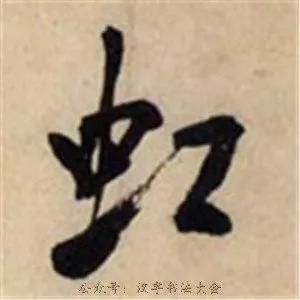 虹
公众号：汉字书法大会